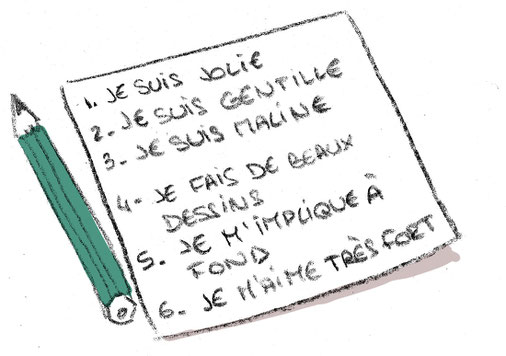 1. JE SUIS JOLIE
2. JE SUIS GENTILLE
3. JE SUIS MALINE
4- JE FAIS DE BEAUX
DESSINS
5. JE M'IMPLIQUE À
FOND
6- JE M'AIME TRÈS FORT